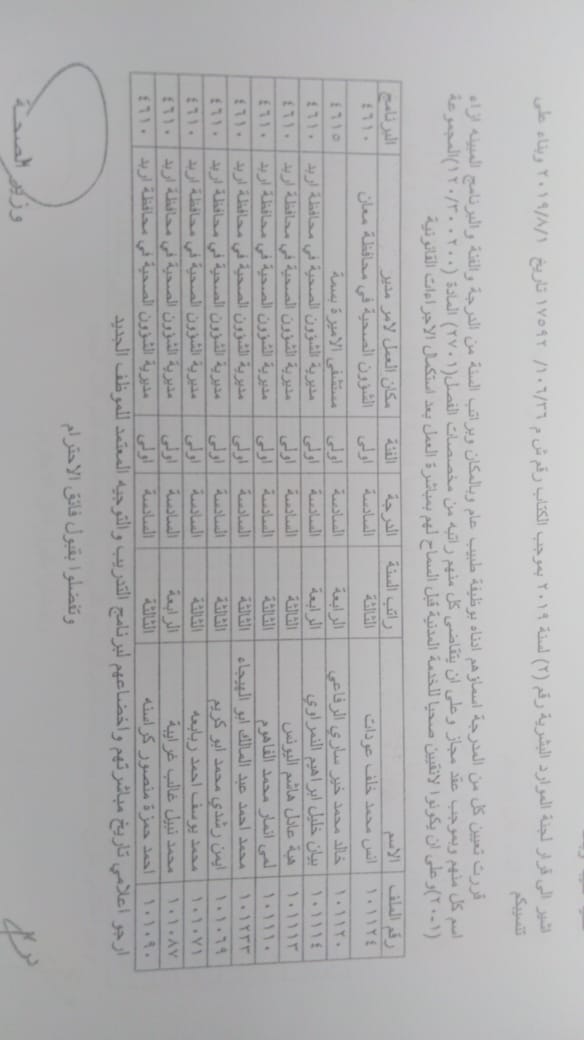 تنسيبكم
اشير الى قرار لجنة الموارد البشرية رقم (٢) لسنة ٢٠١٩ بموجب الكتاب رقم ش م ١٠٦/٣٦/ ١٧٥٩٢ تاريخ ٢٠١٩/٨/١ وبناء على
قررت تعيين كل من المدرجة اسماؤهم ادناه بوظيفة طبيب عام وبالمكان وبراتب السنة من الدرجة والفئة والبرنامج المبينه ازاء
اسم كل منهم وبموجب عقد مجاز وعلى ان يتقاضى كل منهم راتبه من مخصصات الفصل(٢٧٠١) المادة (١٢٠/٣٠٠٢٠٠) المجموعة
(٢٠٠١)وعلى ان يكونوا لائقين صحيا للخدمة المدنية قبل السماح لهم بمباشرة العمل بعد استكمال الاجراءات القانونية
رقم الملف الاسم راتب السنة الدرجة الفئة مكان العمل لامر مدير البرنامج
١٠١١٢٤ انس محمد خلف عودات الثالثة السادسة اولى الشؤون الصحية في محافظة معان ٤٦١٠
١٠١١٢٠ خالد محمد خير ساري الرفاعي الرابعة السادسة اولى مستشفى الاميرة بسمة ٤٦١٥
١٠١١١٤ بيان خليل ابراهيم النمراوي الرابعة السادسة اولى مديرية الشؤون الصحية في محافظة اربد ٤٦١٠
١٠١١١٣ هبة عادل هاشم اليونس الثالثة السادسة اولى مديرية الشؤون الصحية في محافظة اربد ٤٦١٠
١٠١١١٠ لمى انمار محمد الفاهوم الثالثة السادسة اولى مديرية الشؤون الصحية في محافظة اربد ٤٦١٠
١٠١٢٣٣ محمد احمد عبد المالك ابو الهيجاء الثالثة السادسة اولى مديرية الشؤون الصحية في محافظة اربد ٤٦١٠
١٠١٠٦٩ ايمن رشدي محمد ابو كريم الثالثة السادسة اولى مديرية الشؤون الصحية في محافظة اربد ٤٦١٠
١٠١٠٧١ محمد يوسف احمد ربابعه الثالثة السادسة اولى مديرية الشؤون الصحية في محافظة اربد ٤٦١٠
١٠١٠٨٧ محمد نبيل غالب غرايبة الرابعة السادسة اولى مديرية الشؤون الصحية في محافظة اربد ٤٦١٠
١٠١٠٩٠ احمد حمزة منصور كراسنه الثالثة السادسة اولى مديرية الشؤون الصحية في محافظة اربد ٤٦١٠
ارجو اعلامي تاريخ مباشرتهم واخضاعهم لبرنامج التدريب والتوجيه المعتمد للموظف الجديد
وتفضلوا بقبول فائق الاحترام
وزير الصحة